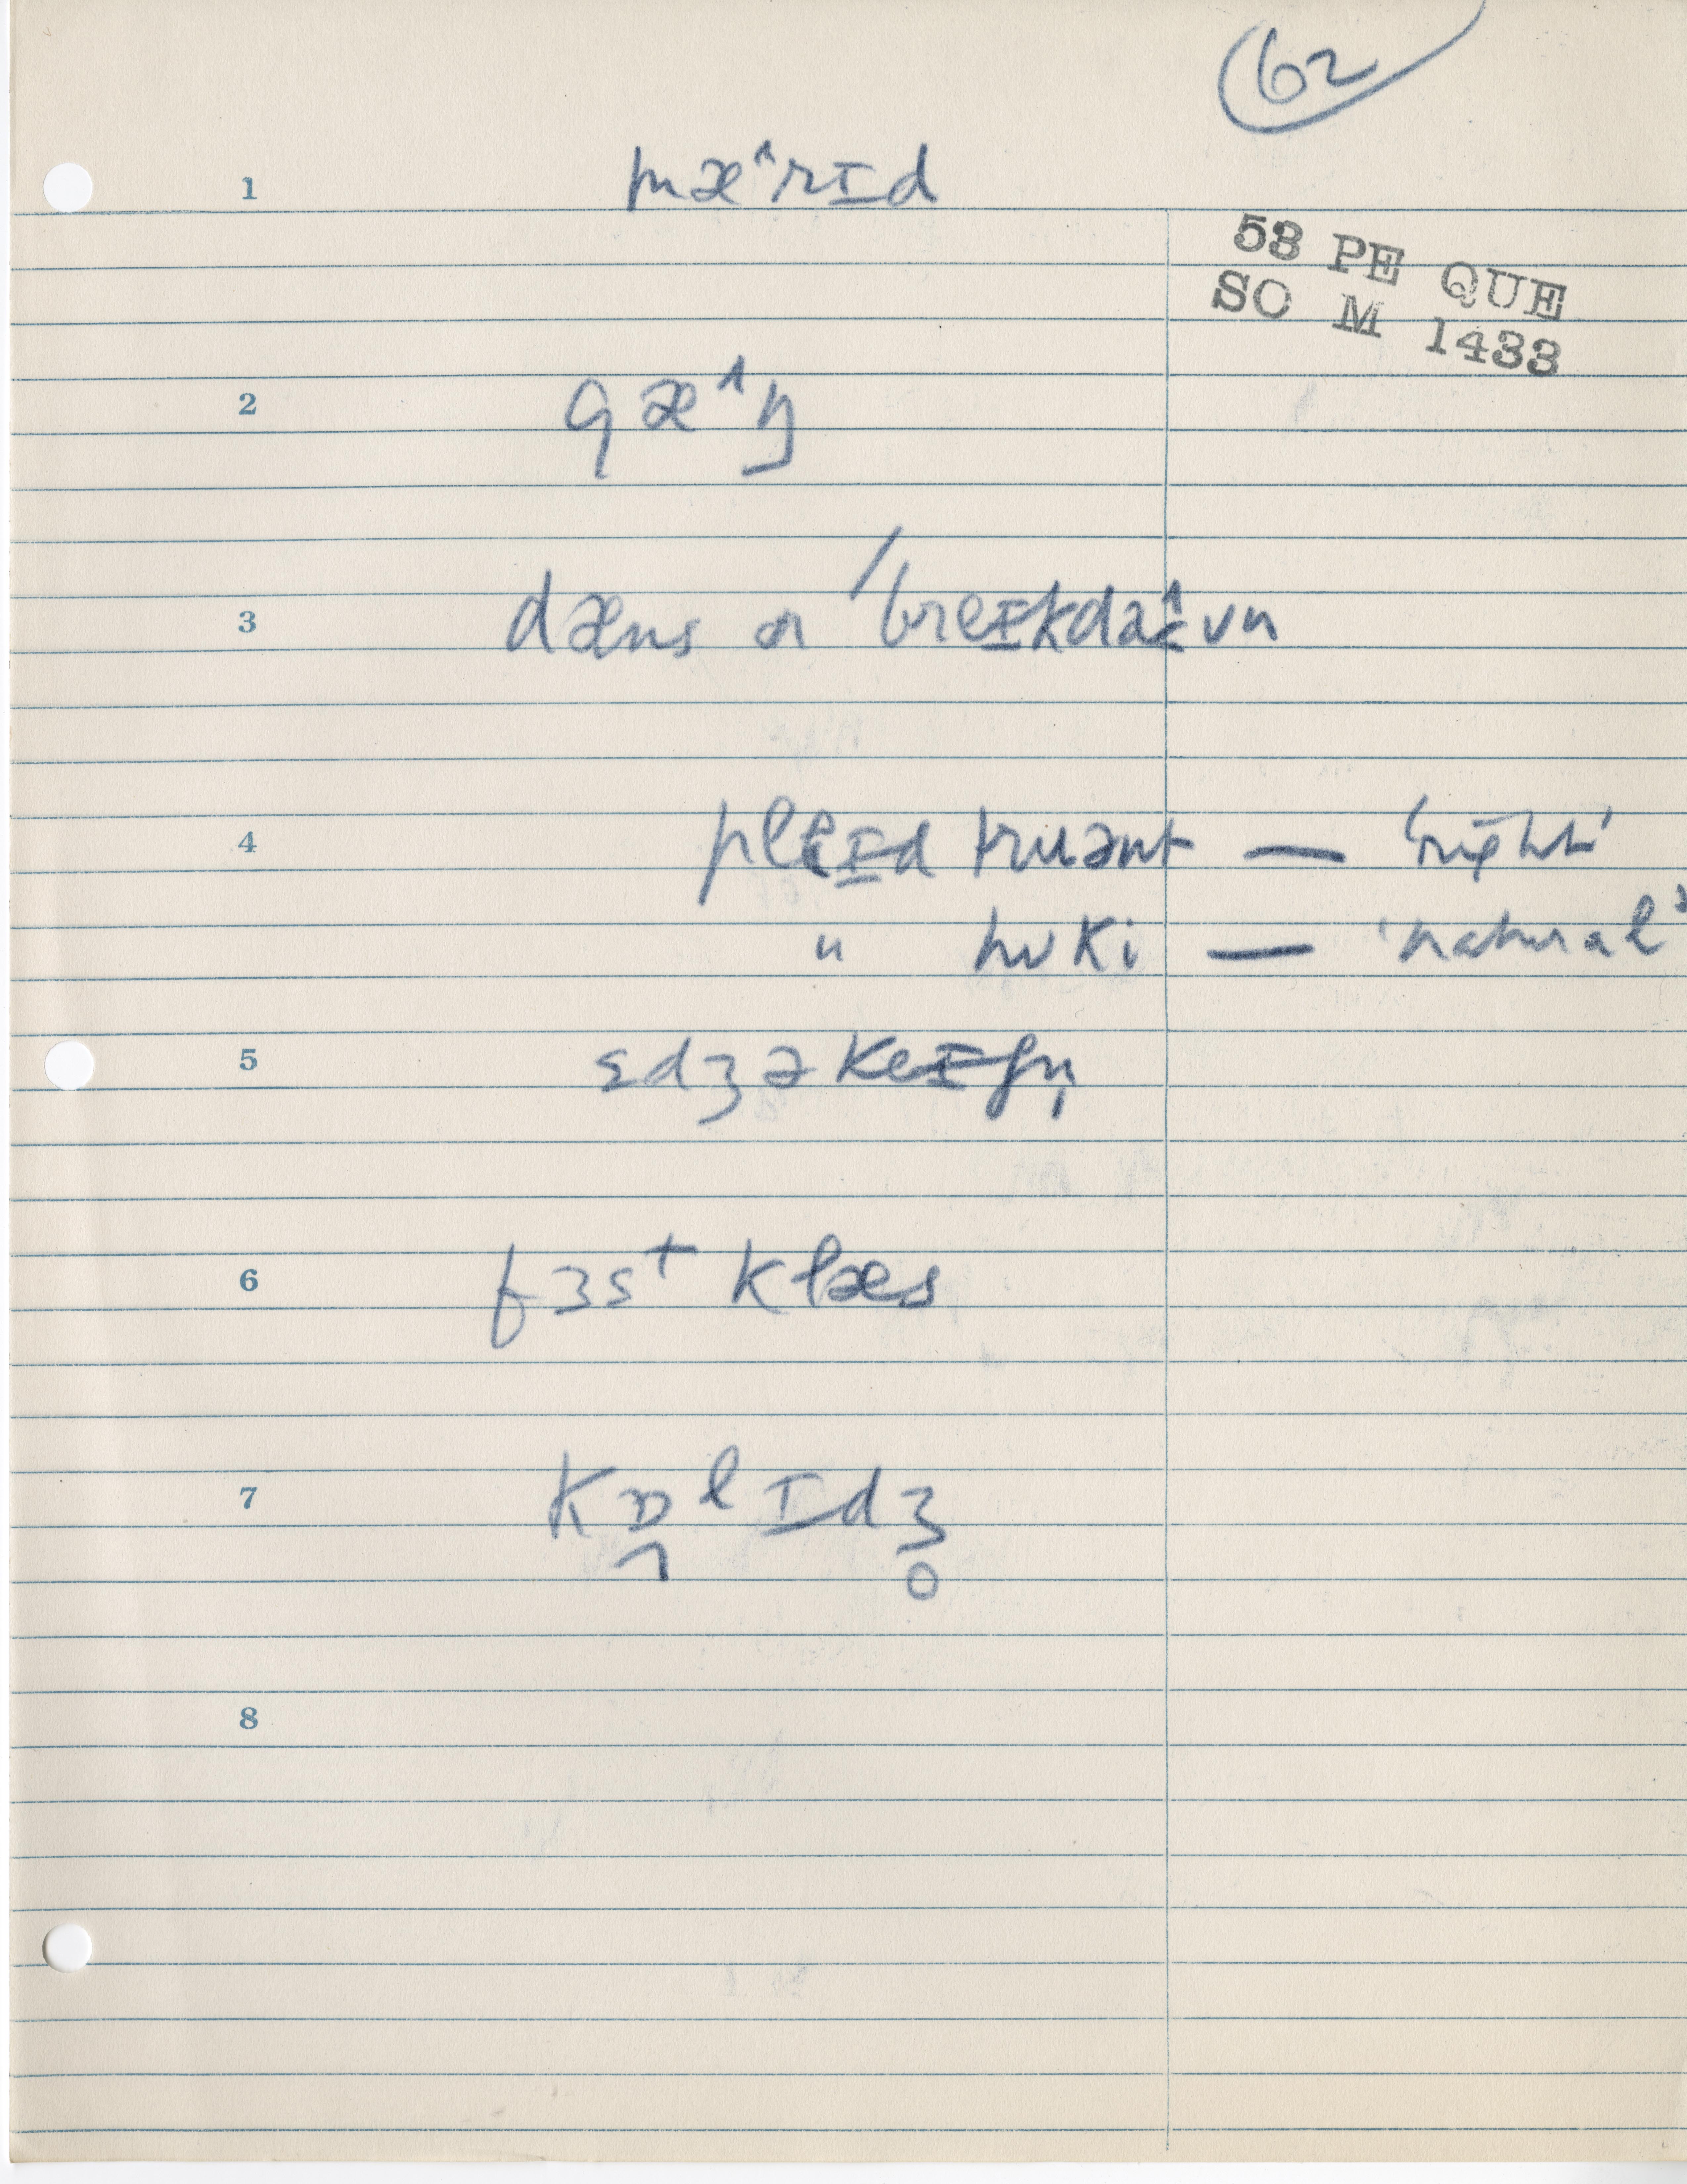 62
1 mæ^rɪd
53 PE QUE
SO M 1433
2 gæ^ŋ
3 dæns ɚ / breɪkda^ʊn
4 pleɪd truənt — 'right'
" hʊki — 'natural'
5 ɛdʒəkeɪʃn̩
6 fɜst klæs
7 kɒlɪdʒ̥
8